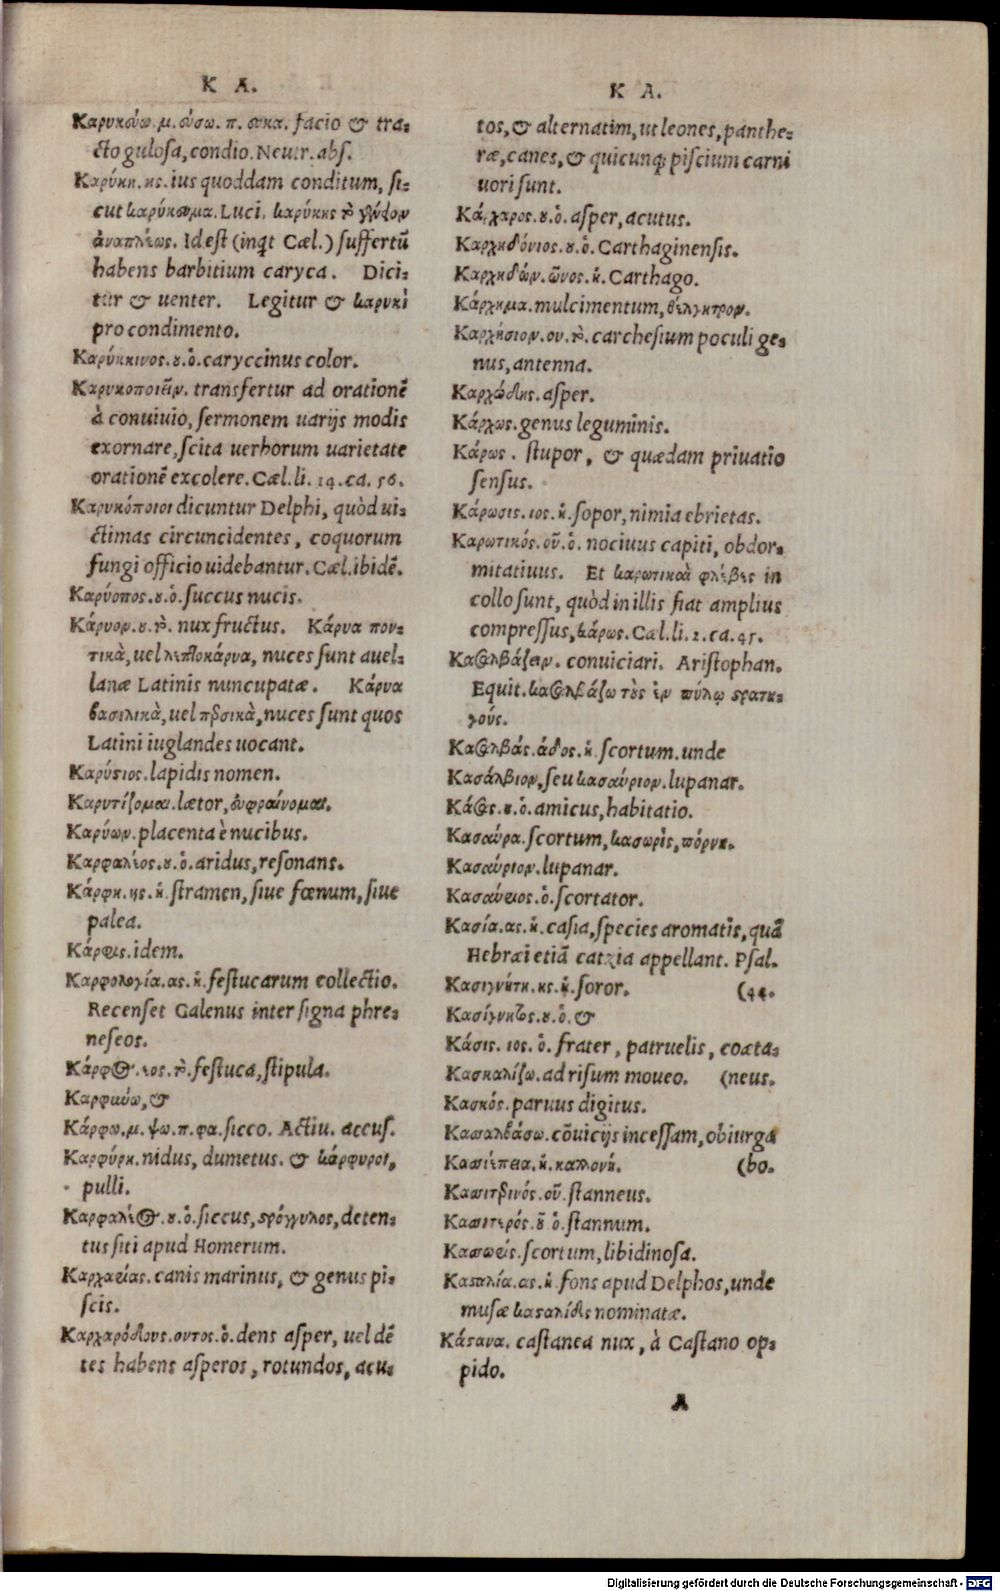 K A.
Καρυκεύω.μ.εύσω.π.ευκα. facio & tra-
cto gulosa, condio. Neutr. abs.
Καρύκη.ης. ius quoddam conditum, si-
cut καρύκευμα. Luci. καρύκης τὸ γένειον
ἀνάπλεως. Id est (inqt Cæl.) suffertũ
habens barbitium caryca. Dici-
tur & uenter. Legitur & καρυκὶ
pro condimento.
Καρύκκινος.ȣ.ὁ. caryccinus color.
Καρυκοποιεῖν. transfertur ad orationẽ
à conuiuio, sermonem uarijs modis
exornare, scita uerborum uarietate
orationẽ excolere. Cæl. li. 14. ca. 56.
Καρυκόποιοι dicuntur Delphi, quòd ui-
ctimas circuncidentes, coquorum
fungi officio uidebantur. Cæl. ibidẽ.
Καρύοπος.ȣ.ὁ. succus nucis.
Κάρυον.ȣ.τὸ. nux fructus. Κάρυα πον-
τικὰ, uel λεπτοκάρυα, nuces sunt auel-
lanæ Latinis nuncupatæ. Κάρυα
βασιλικὰ, uel περσικὰ, nuces sunt quos
Latini iuglandes uocant.
Καρύστιος. lapidis nomen.
Καρυτίζομαι. lætor, εὐφραίνομαι.
Καρύων. placenta è nucibus.
Καρφαλέος.ȣ.ὁ. aridus, resonans.
Κάρφη.ης.ἡ. stramen, siue fœnum, siue
palea.
Κάρφις. idem.
Καρφολογία.ας.ἡ. festucarum collectio.
Recenset Galenus inter signa phre-
neseos.
Κάρφος.εος.τὸ. festuca, stipula.
Καρφεύω, &
Κάρφω.μ.ψω.π.φα. sicco. Actiu. accus.
Καρφύρη. nidus, dumetus. & κάρφυροι,
pulli.
Καρφαλέος.ȣ.ὁ. siccus, στρόγγυλος, deten-
tus siti apud Homerum.
Καρχαρίας. canis marinus, & genus pi-
scis.
Καρχαρόδους.οντος.ὁ. dens asper, uel dẽ
tes habens asperos, rotundos, acu-
K A.
tos, & alternatim, ut leones, panthe-
ræ, canes, & quicunq; piscium carni
uori sunt.
Κάρχαρος.ȣ.ὁ. asper, acutus.
Καρχηδόνιος.ȣ.ὁ. Carthaginensis.
Καρχηδών.ῶνος.ἡ. Carthago.
Κάρχημα. mulcimentum, θέλγητρον.
Καρχήσιον.ου.τὸ. carchesium poculi ge-
nus, antenna.
Καρχώδης. asper.
Κάρχως. genus leguminis.
Κάρως. stupor, & quædam priuatio
sensus.
Κάρωσις.ιος.ἡ. sopor, nimia ebrietas.
Καρωτικός.οῦ.ὁ. nociuus capiti, obdor-
mitatiuus. Et καρωτικαὶ φλέβες in
collo sunt, quòd in illis fiat amplius
compressus, κάρως. Cæl. li. 2. ca. 45.
Κασαλβάζειν. conuiciari. Aristophan.
Equit. κασαλβάζω τοὺς ἐν πύλῳ στρατη-
γούς.
Κασαλβάς.άδος.ἡ. scortum. unde
Κασάλβιον, seu κασαύριον. lupanar.
Κάσας.ȣ.ὁ. amicus, habitatio.
Κασαύρα. scortum, κασωρὶς, πόρνη.
Κασαύριον. lupanar.
Κασαύριος.ὁ. scortator.
Κασία.ας.ἡ. casia, species aromatis, quã
Hebræi etiã catzia appellant. Psal.
Κασιγνήτη.ης.ἡ. soror. (44.
Κασίγνητος.ȣ.ὁ. &
Κάσις.ιος.ὁ. frater, patruelis, coæta-
Κασκαλίζω. ad risum moueo. (neus.
Κασκός. paruus digitus.
Κασσαλβάσω. cõuicijs incessam, obiurga
Κασσιέπεια.ἡ. καλλονή. (bo.
Κασσιτρινός.οῦ. stanneus.
Κασσιτερός.ȣ̃ ὁ. stannum.
Κασσωρίς. scortum, libidinosa.
Κασταλία.ας.ἡ. fons apud Delphos, unde
musæ κασταλίδες nominatæ.
Κάστανα. castanea nux, à Castano op-
pido.
A
Digitalisierung gefördert durch die Deutsche Forschungsgemeinschaft - DFG